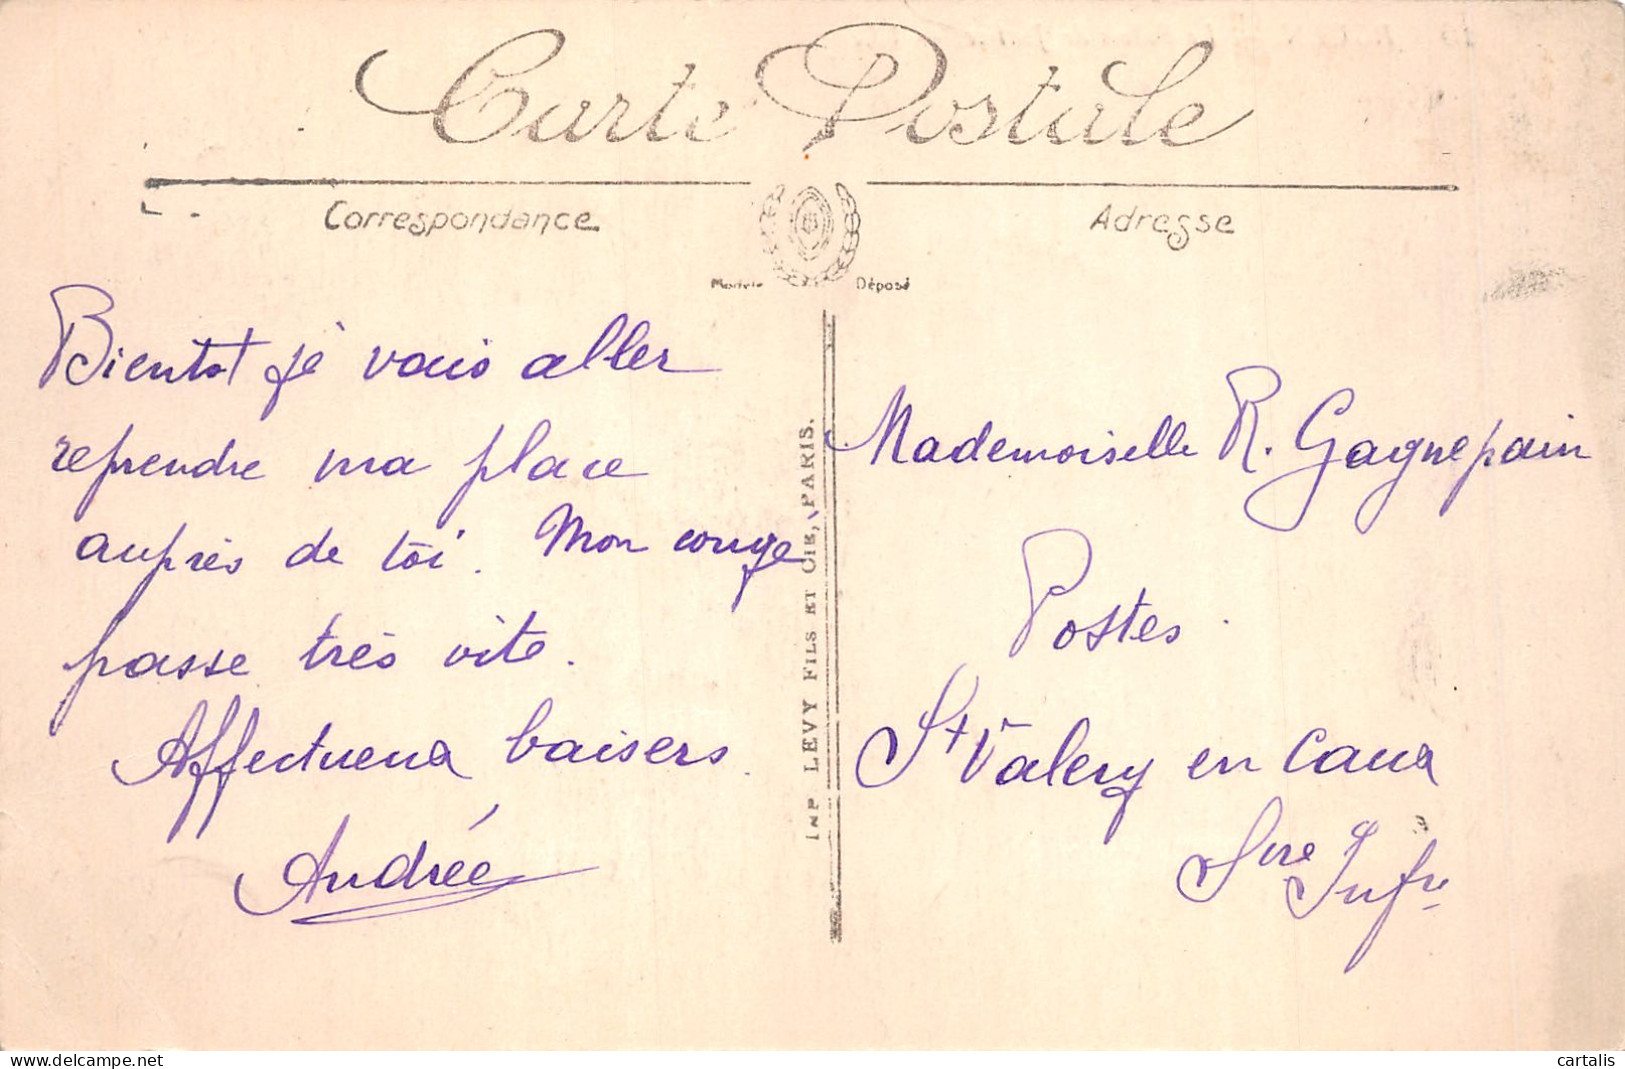 Carte Postale
Correspondance
Adresse
Modèle Déposé
Bientot je vais aller
reprendre ma place
auprès de toi. Mon conge
passe très vite.
Affectueux baisers.
Andrée
IMP LEVY FILS ET CIE, PARIS.
Mademoiselle R. Gagnepain
Postes.
St Valery en Caux
Sere Infre
www.delcampe.net
cartalis